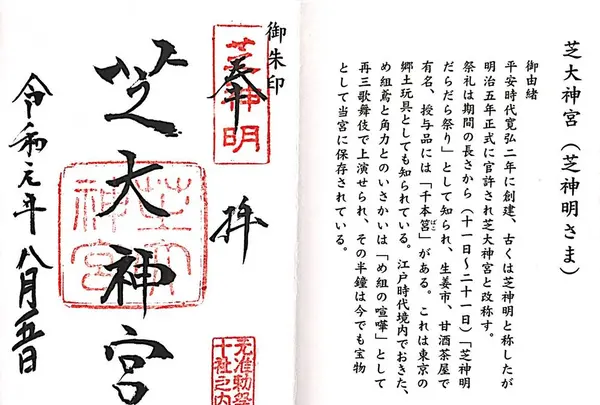 芝大神宮（芝神明さま）
御由緒
平安時代寛弘二年に創建、古くは芝神明と称したが
明治五年正式に官許され芝大神宮と改称す。
祭礼は期間の長さから（十一日〜二十一日）「芝神明
だらだら祭り」として知られ、生姜市、甘酒茶屋で
有名、授与品には「千本筥」がある。これは東京の
郷土玩具としても知られている。江戸時代境内でおきた、
め組鳶と角力とのいさかいは「め組の喧嘩」として
再三歌舞伎で上演せられ、その半鐘は今でも宝物
として当宮に保存されている。
御朱印
芝神明
奉拝
芝大神宮
芝大神宮
元准勅祭
十社之内
令和元年八月五日